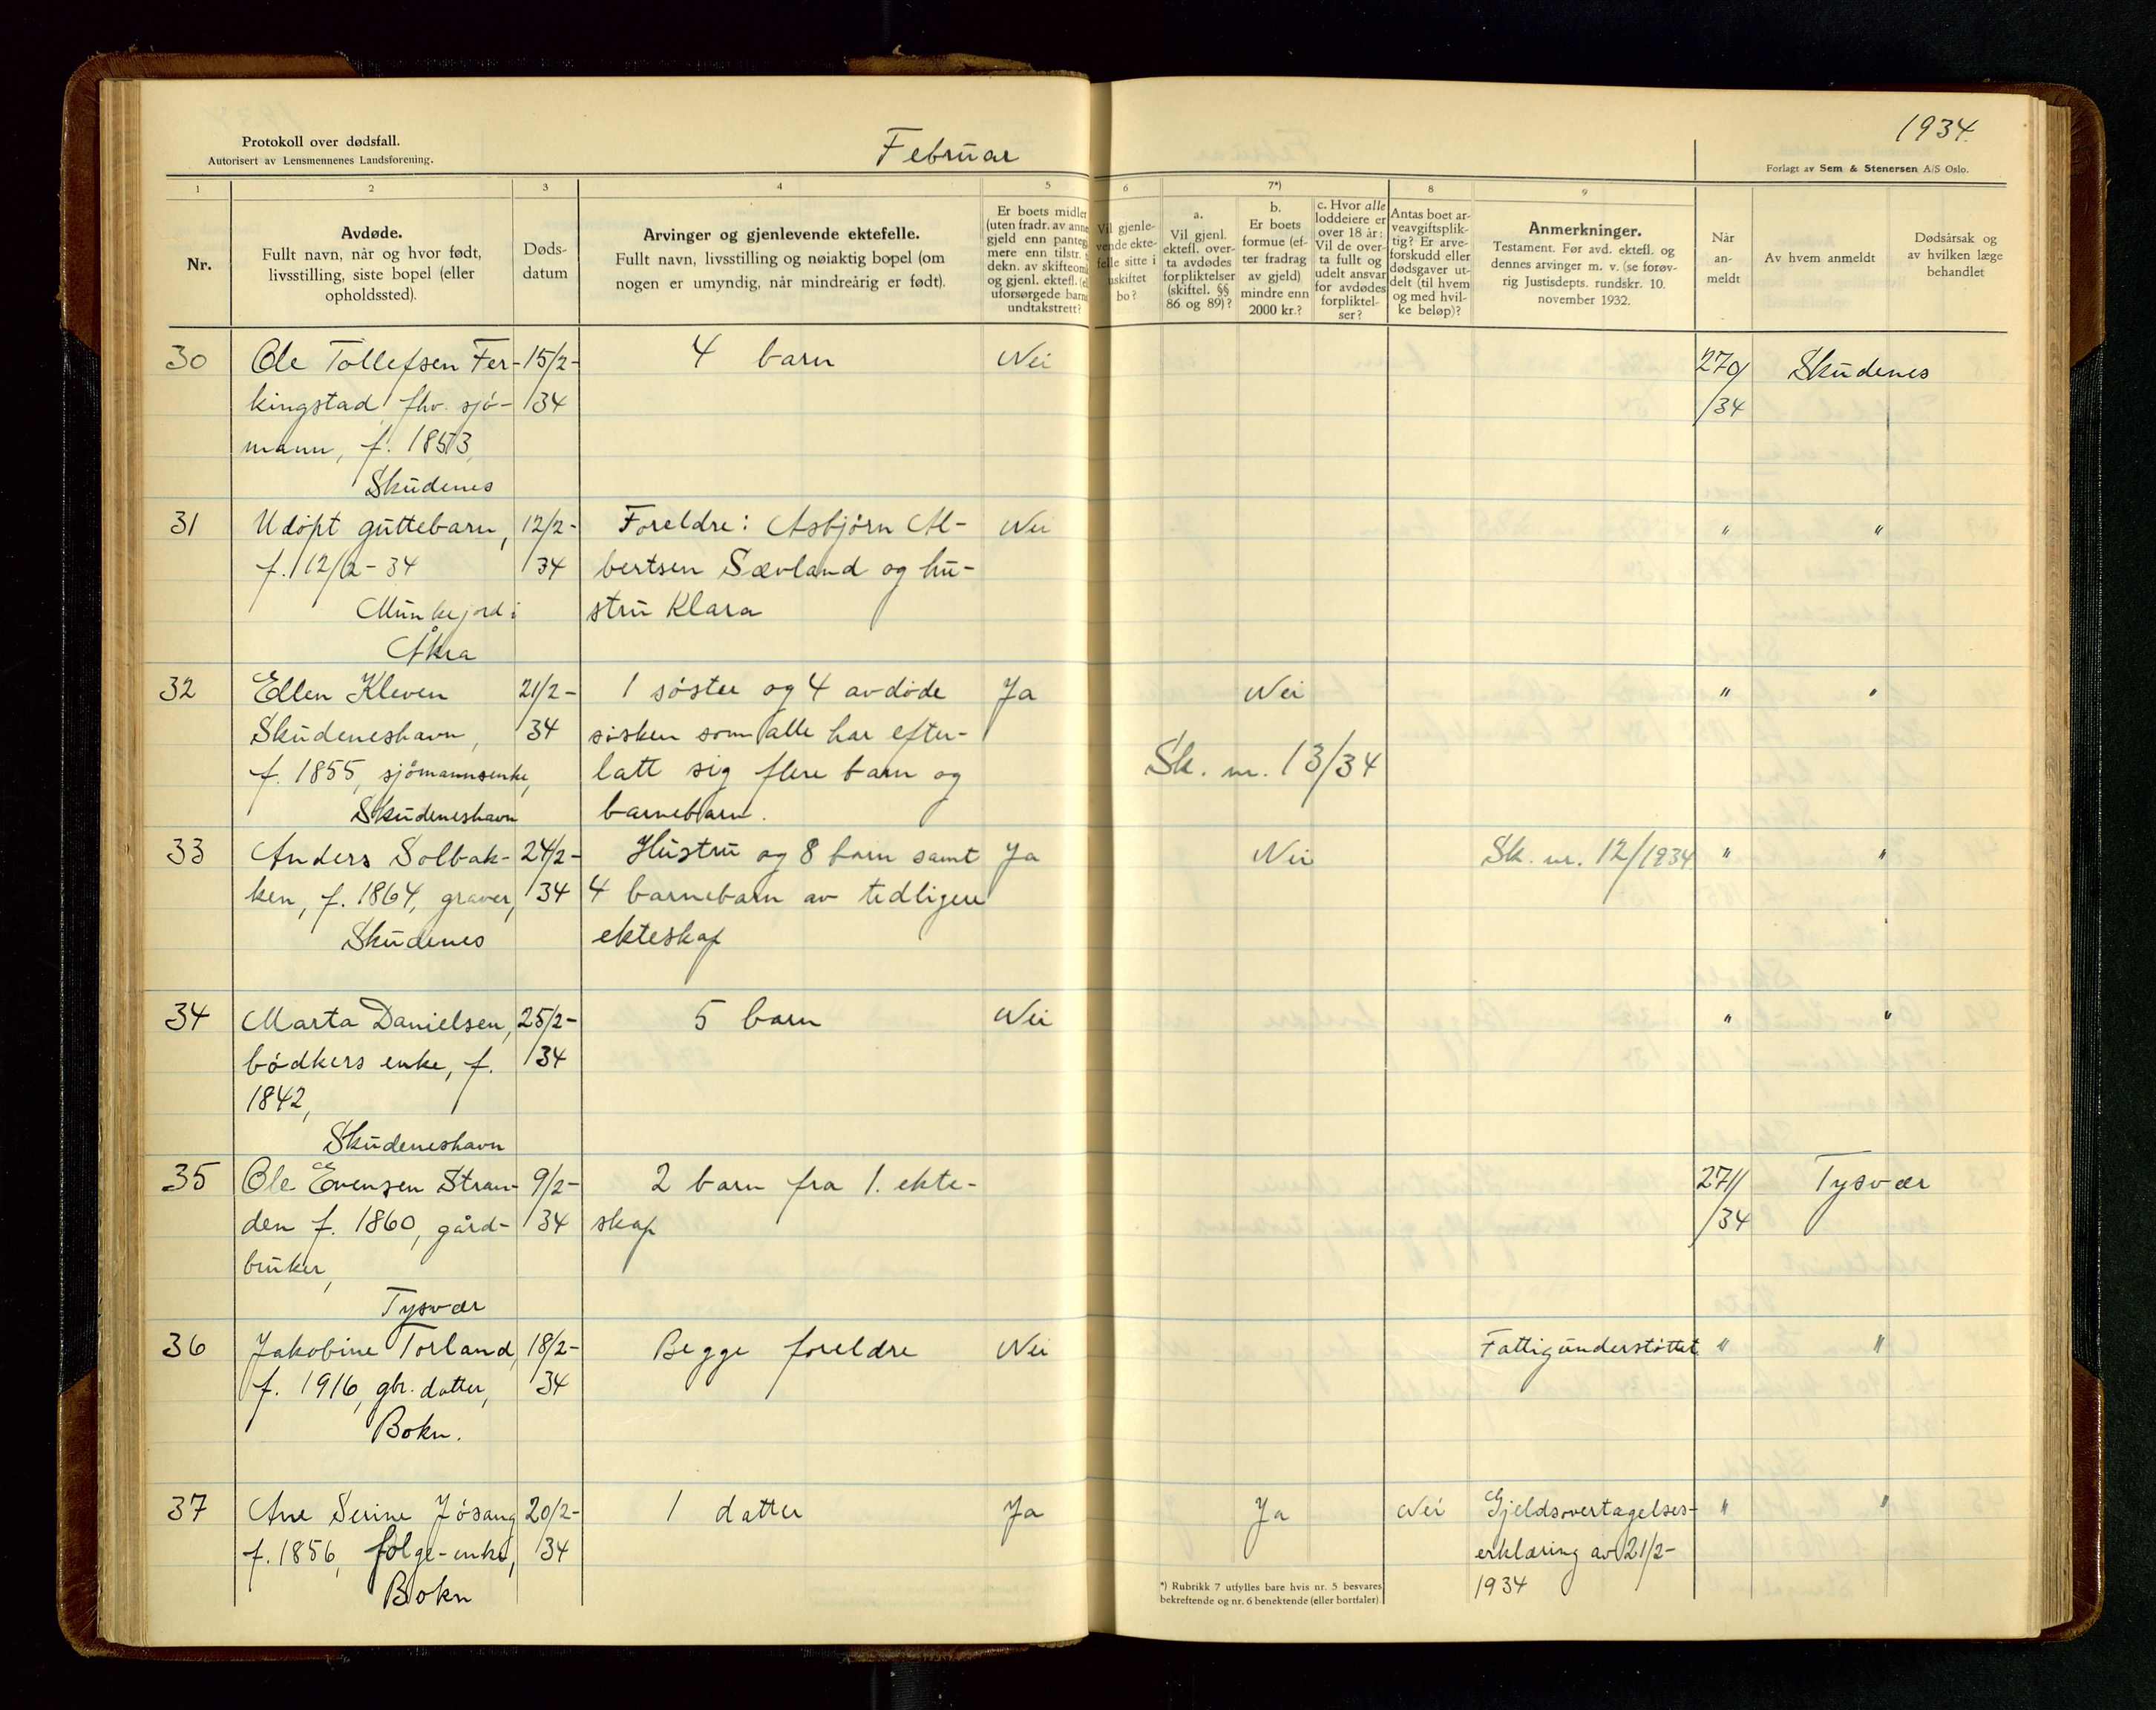 Protokoll over dødsfall.
Autorisert av Lensmennenes Landsforening.
Februar
1934.
Forlagt av Sem & Stenersen A/S Oslo.
1 2 3 4 5 6 7*) 8 9
Nr.
Avdøde.
Fullt navn, når og hvor født,
livsstilling, siste bopel (eller
opholdssted).
Døds-
datum
Arvinger og gjenlevende ektefelle.
Fullt navn, livsstilling og nøiaktig bopel (om
nogen er umyndig, når mindreårig er født).
Er boets midler
(uten fradr. av annen
gjeld enn panteg
mere enn tilstr.
dekn. av skifteom
og gjenl. ektefl. (e
uforsørgede barns
undtakstrett?
Vil gjenle-
vende ekte-
felle sitte i
uskiftet
bo?
a.
Vil gjenl.
ektefl. over-
ta avdødes
forpliktelser
(skiftel. §§
86 og 89)?
b.
Er boets
formue (ef-
ter fradrag
av gjeld)
mindre enn
2000 kr.?
c. Hvor alle
loddeiere er
over 18 år:
Vil de over-
ta fullt og
udelt ansvar
for avdødes
forpliktel-
ser?
Antas boet ar-
veavgiftsplik-
tig? Er arve-
forskudd eller
dødsgaver ut-
delt (til hvem
og med hvil-
ke beløp)?
Anmerkninger.
Testament. Før avd. ektefl. og
dennes arvinger m. v. (se forøv-
rig Justisdepts. rundskr. 10.
november 1932.
Når
an-
meldt
Av hvem anmeldt
Dødsårsak og
av hvilken læge
behandlet
30 Ole Tollefsen Fer- 15/2- 4 barn Nei 270/ Skudenes
kingstad, fhv. sjø- 34 /34
mann, f. 1853,
Skudenes
31 Udøpt guttebarn, 12/2- Foreldre: Asbjørn Al- Nei " "
f. 12/2-34 34 bertsen Sævland og hu-
Munkejord i stru Klara
Åkra
32 Ellen Kleven 21/2- 1 søster og 4 avdøde Ja Nei " "
Skudeneshavn, 34 søsken som alle har efter-
f. 1855, sjømannsenke, latt sig flere barn og Sk. nr. 13/34
Skudeneshavn barnebarn.
33 Anders Solbak- 24/2- Hustru og 8 barn samt Ja Nei Sk. nr. 12/1934 " "
ken, f. 1864, graver, 34 4 barnebarn av tidligere
Skudenes ekteskap
34 Marta Danielsen, 25/2- 5 barn Nei " "
bødkers enke, f. 34
1842,
Skudeneshavn
35 Ole Evensen Stran- 9/2- 2 barn fra 1. ekte- 271/ Tysvær
den f. 1860, gård- 34 skap /34
bruker,
Tysvær
36 Jakobine Torland, 18/2- Begge foreldre Nei Fattigunderstøttet " "
f. 1916, gbr. datter, 34
Bokn.
37 Ane Serine Jøsang 20/2- 1 datter Ja Ja Nei Gjeldsovertagelses- " "
f. 1856, følge-enke, 34 erklæring av 21/2-
Bokn 1934
*) Rubrikk 7 utfylles bare hvis nr. 5 besvares
bekreftende og nr. 6 benektende (eller bortfaler)